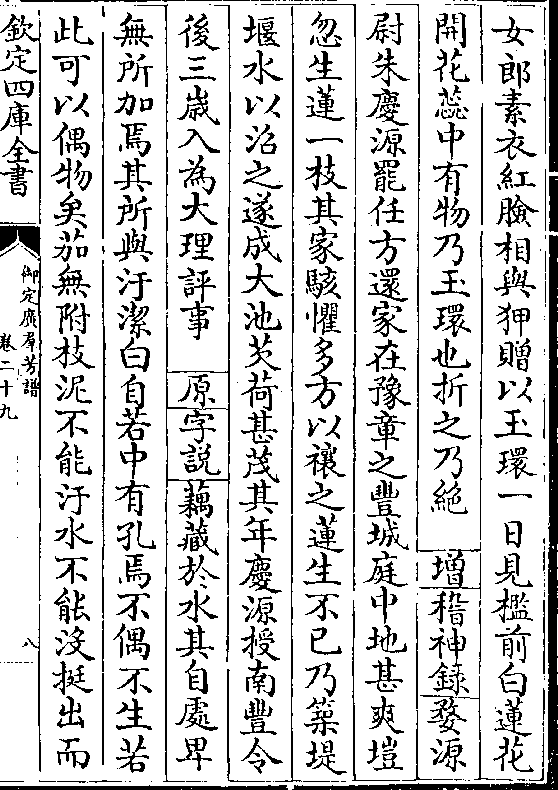 女郎素衣紅臉相與狎贈以玉環一日見檻前白蓮花
開花蕊中有物乃玉環也折之乃絶 增稽神録婺源
尉朱慶源罷任方還家在豫章之豐城庭中地甚爽塏
忽生蓮一枝其家駭懼多方以禳之蓮生不已乃築堤
堰水以沼之遂成大池芡荷甚茂其年慶源授南豐令
後三歳入為大理評事 原字説藕藏於水其自處卑
無所加焉其所與汙潔白自若中有孔焉不偶不生若
此可以偶物矣茄無附枝泥不能汙水不能沒挺出而
欽定四庫全書
御定廣羣芳譜
卷二十九
八